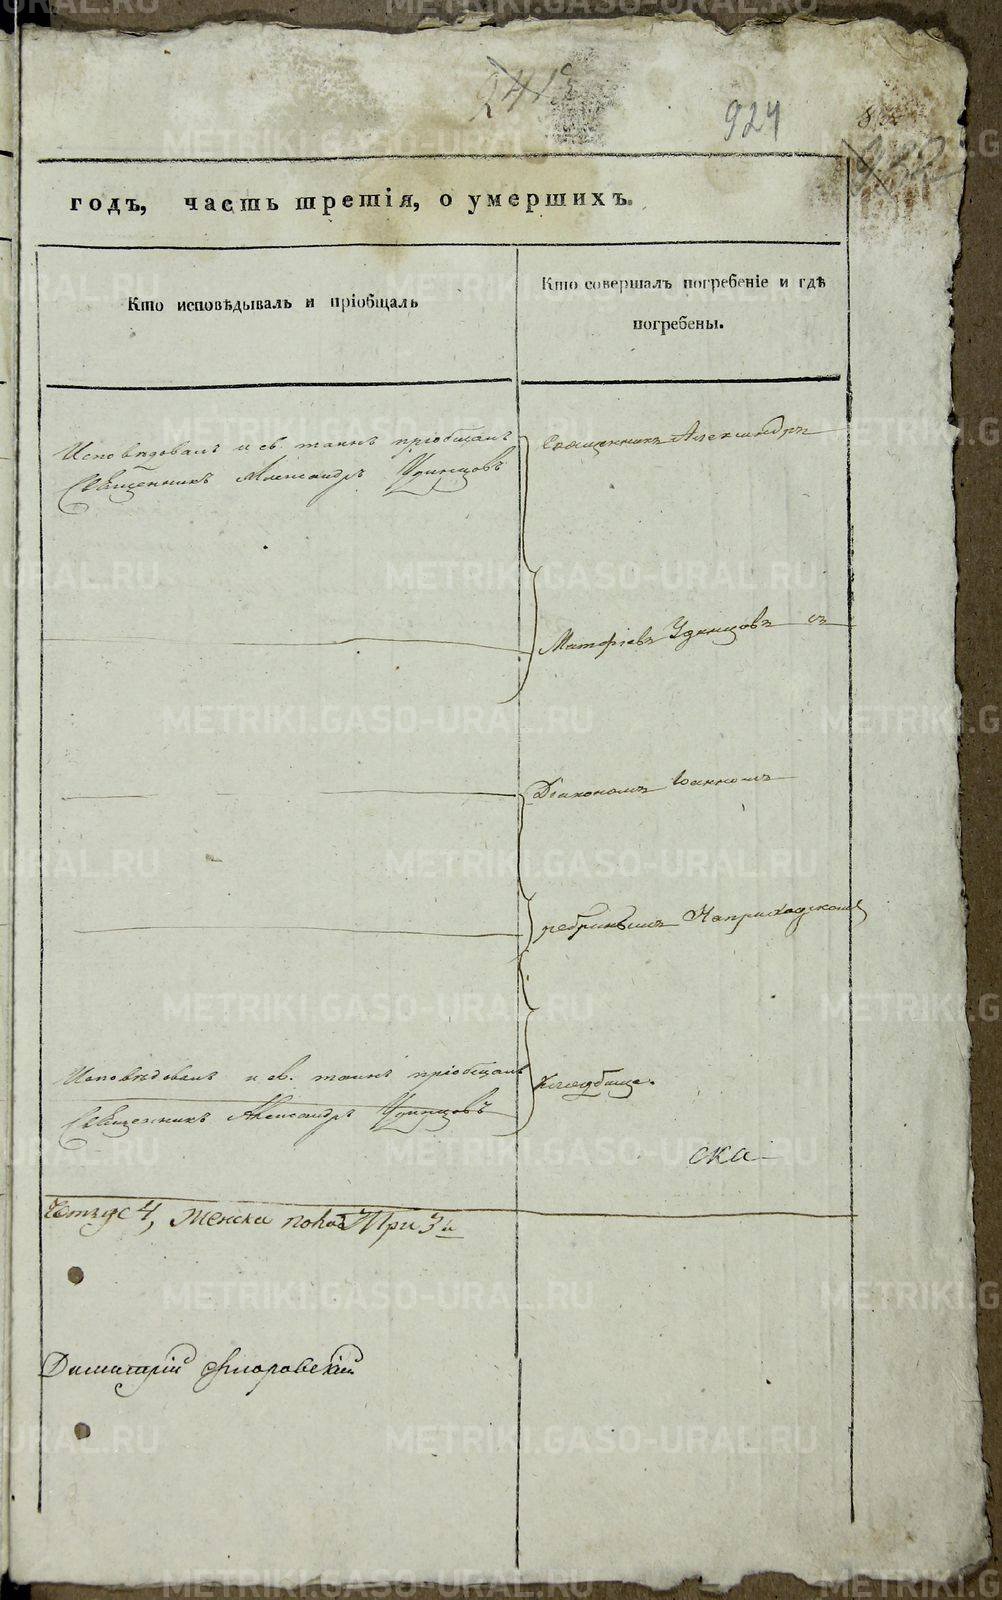 924
годъ, часть третія, о умершихъ.
Кто исповѣдывалъ и пріобщалъ
Кто совершалъ погребеніе и гдѣ
погребены.
Исповѣдовалъ и св. таинъ пріобщалъ
Священникъ Александръ Удинцовъ
Священникъ Александръ
Матфіевъ Удинцовъ съ
Діакономъ Іоанномъ
На приходскомъ
Исповѣдовалъ и св. таинъ пріобщалъ
Священникъ Александръ Удинцовъ
кладбище.
ска
4, женска пола При 3
Димитрій Флоровскій
METRIKI.GASO-URAL.RU